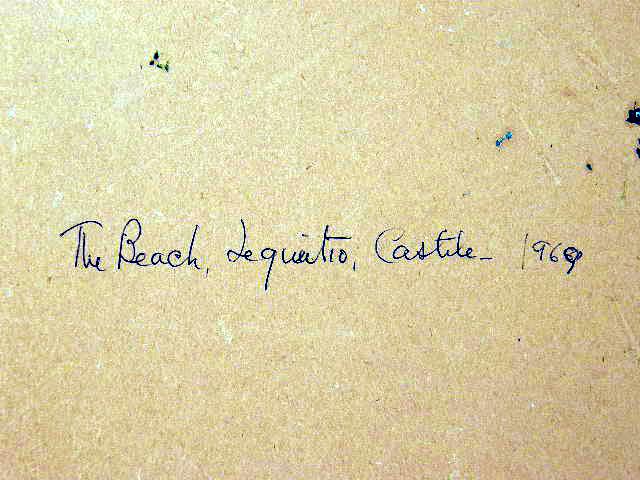 The Beach, Lequitio, Castile - 1969